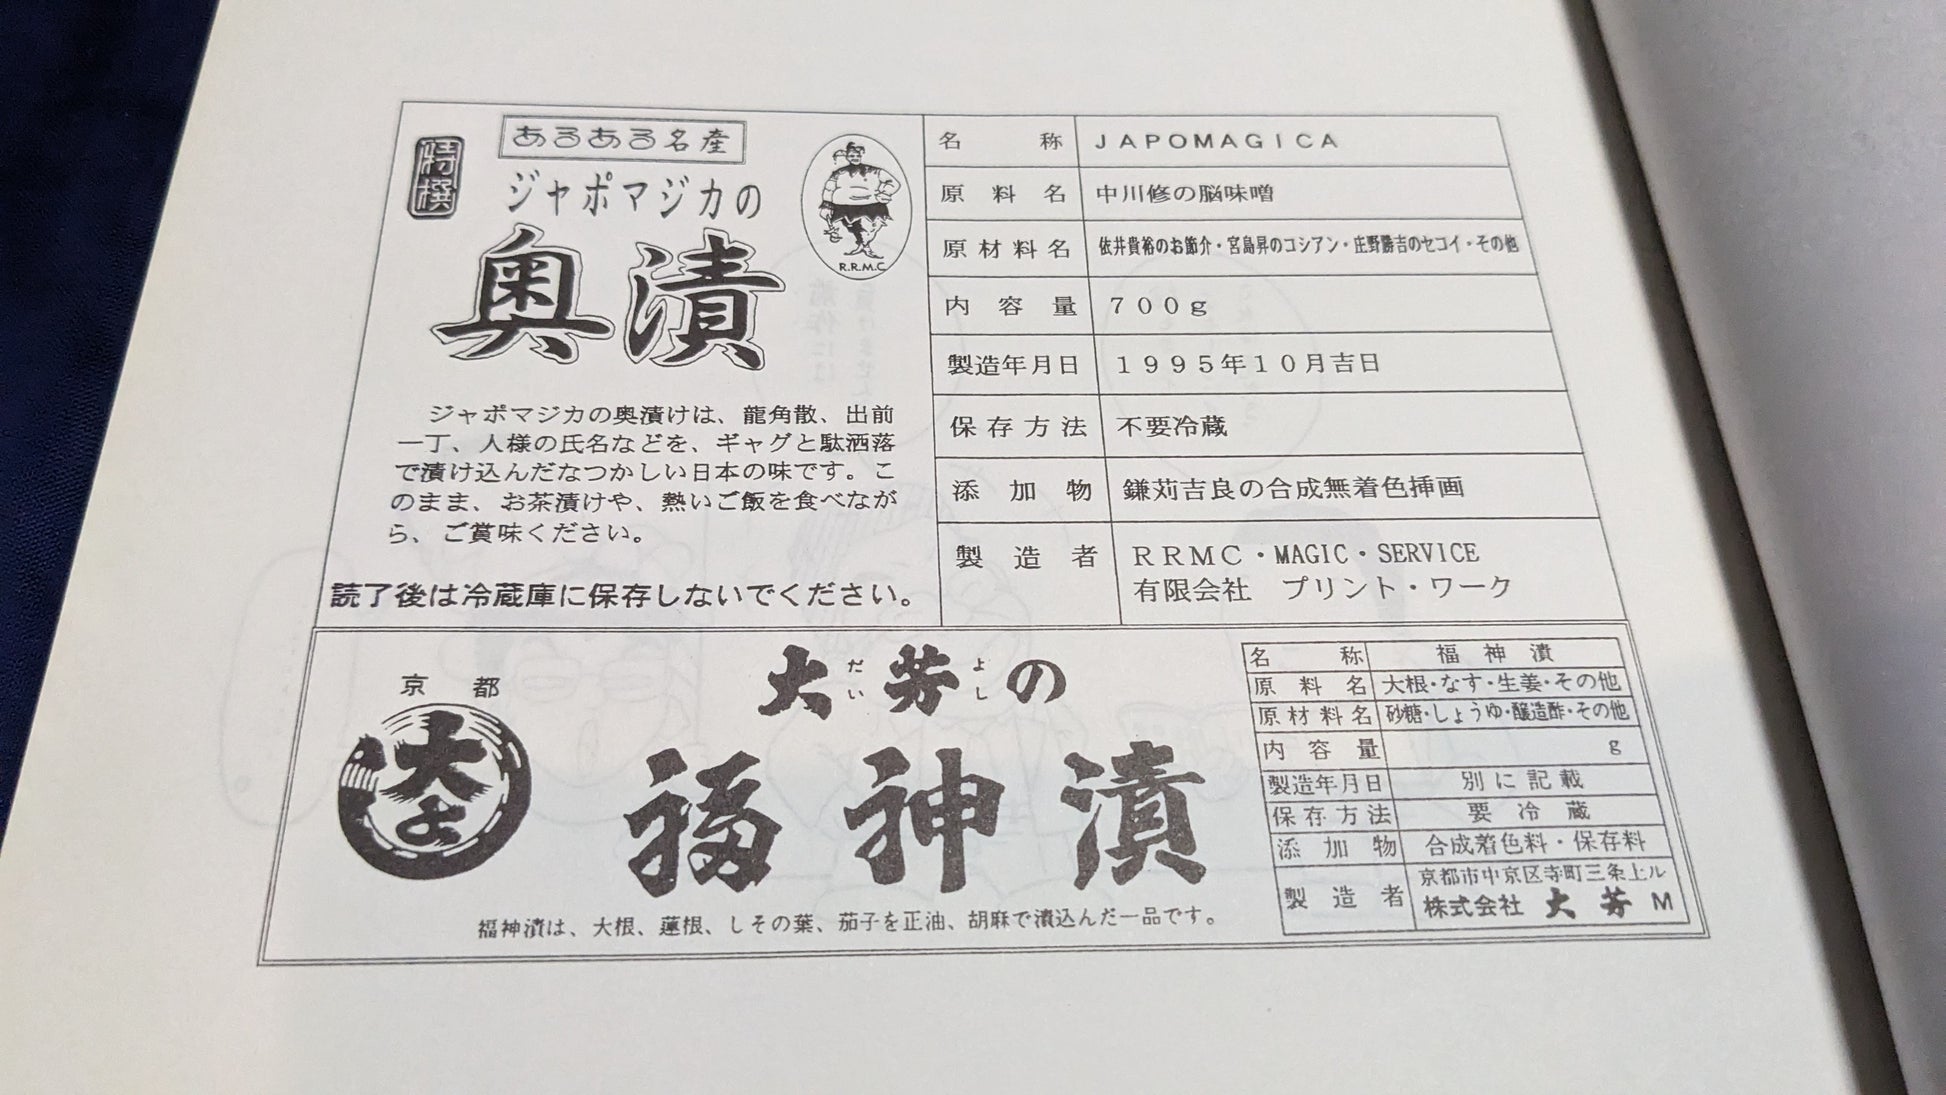 特撰
あるある名産
ジャポマジカの
奥漬
R.R.M.C
ジャポマジカの奥漬けは、龍角散、出前
一丁、人様の氏名などを、ギャグと駄洒落
で漬け込んだなつかしい日本の味です。こ
のまま、お茶漬けや、熱いご飯を食べなが
ら、ご賞味ください。
読了後は冷蔵庫に保存しないでください。
名称 JAPOMAGICA
原料名 中川修の脳味噌
原材料名 依井貴裕のお節介・宮島昇のコシアン・庄野勝吉のセコイ・その他
内容量 700g
製造年月日 1995年10月吉日
保存方法 不要冷蔵
添加物 鎌苅吉良の合成無着色挿画
製造者 RRMC・MAGIC・SERVICE
有限会社 プリント・ワーク
京都
大よ
大芳の
だい よし
福神漬
福神漬は、大根、蓮根、しその葉、茄子を正油、胡麻で漬込んだ一品です。
名称 福神漬
原料名 大根・なす・生姜・その他
原材料名 砂糖・しょうゆ・醸造酢・その他
内容量 g
製造年月日 別に記載
保存方法 要冷蔵
添加物 合成着色料・保存料
製造者 京都市中京区寺町三条上ル
株式会社 大芳 M